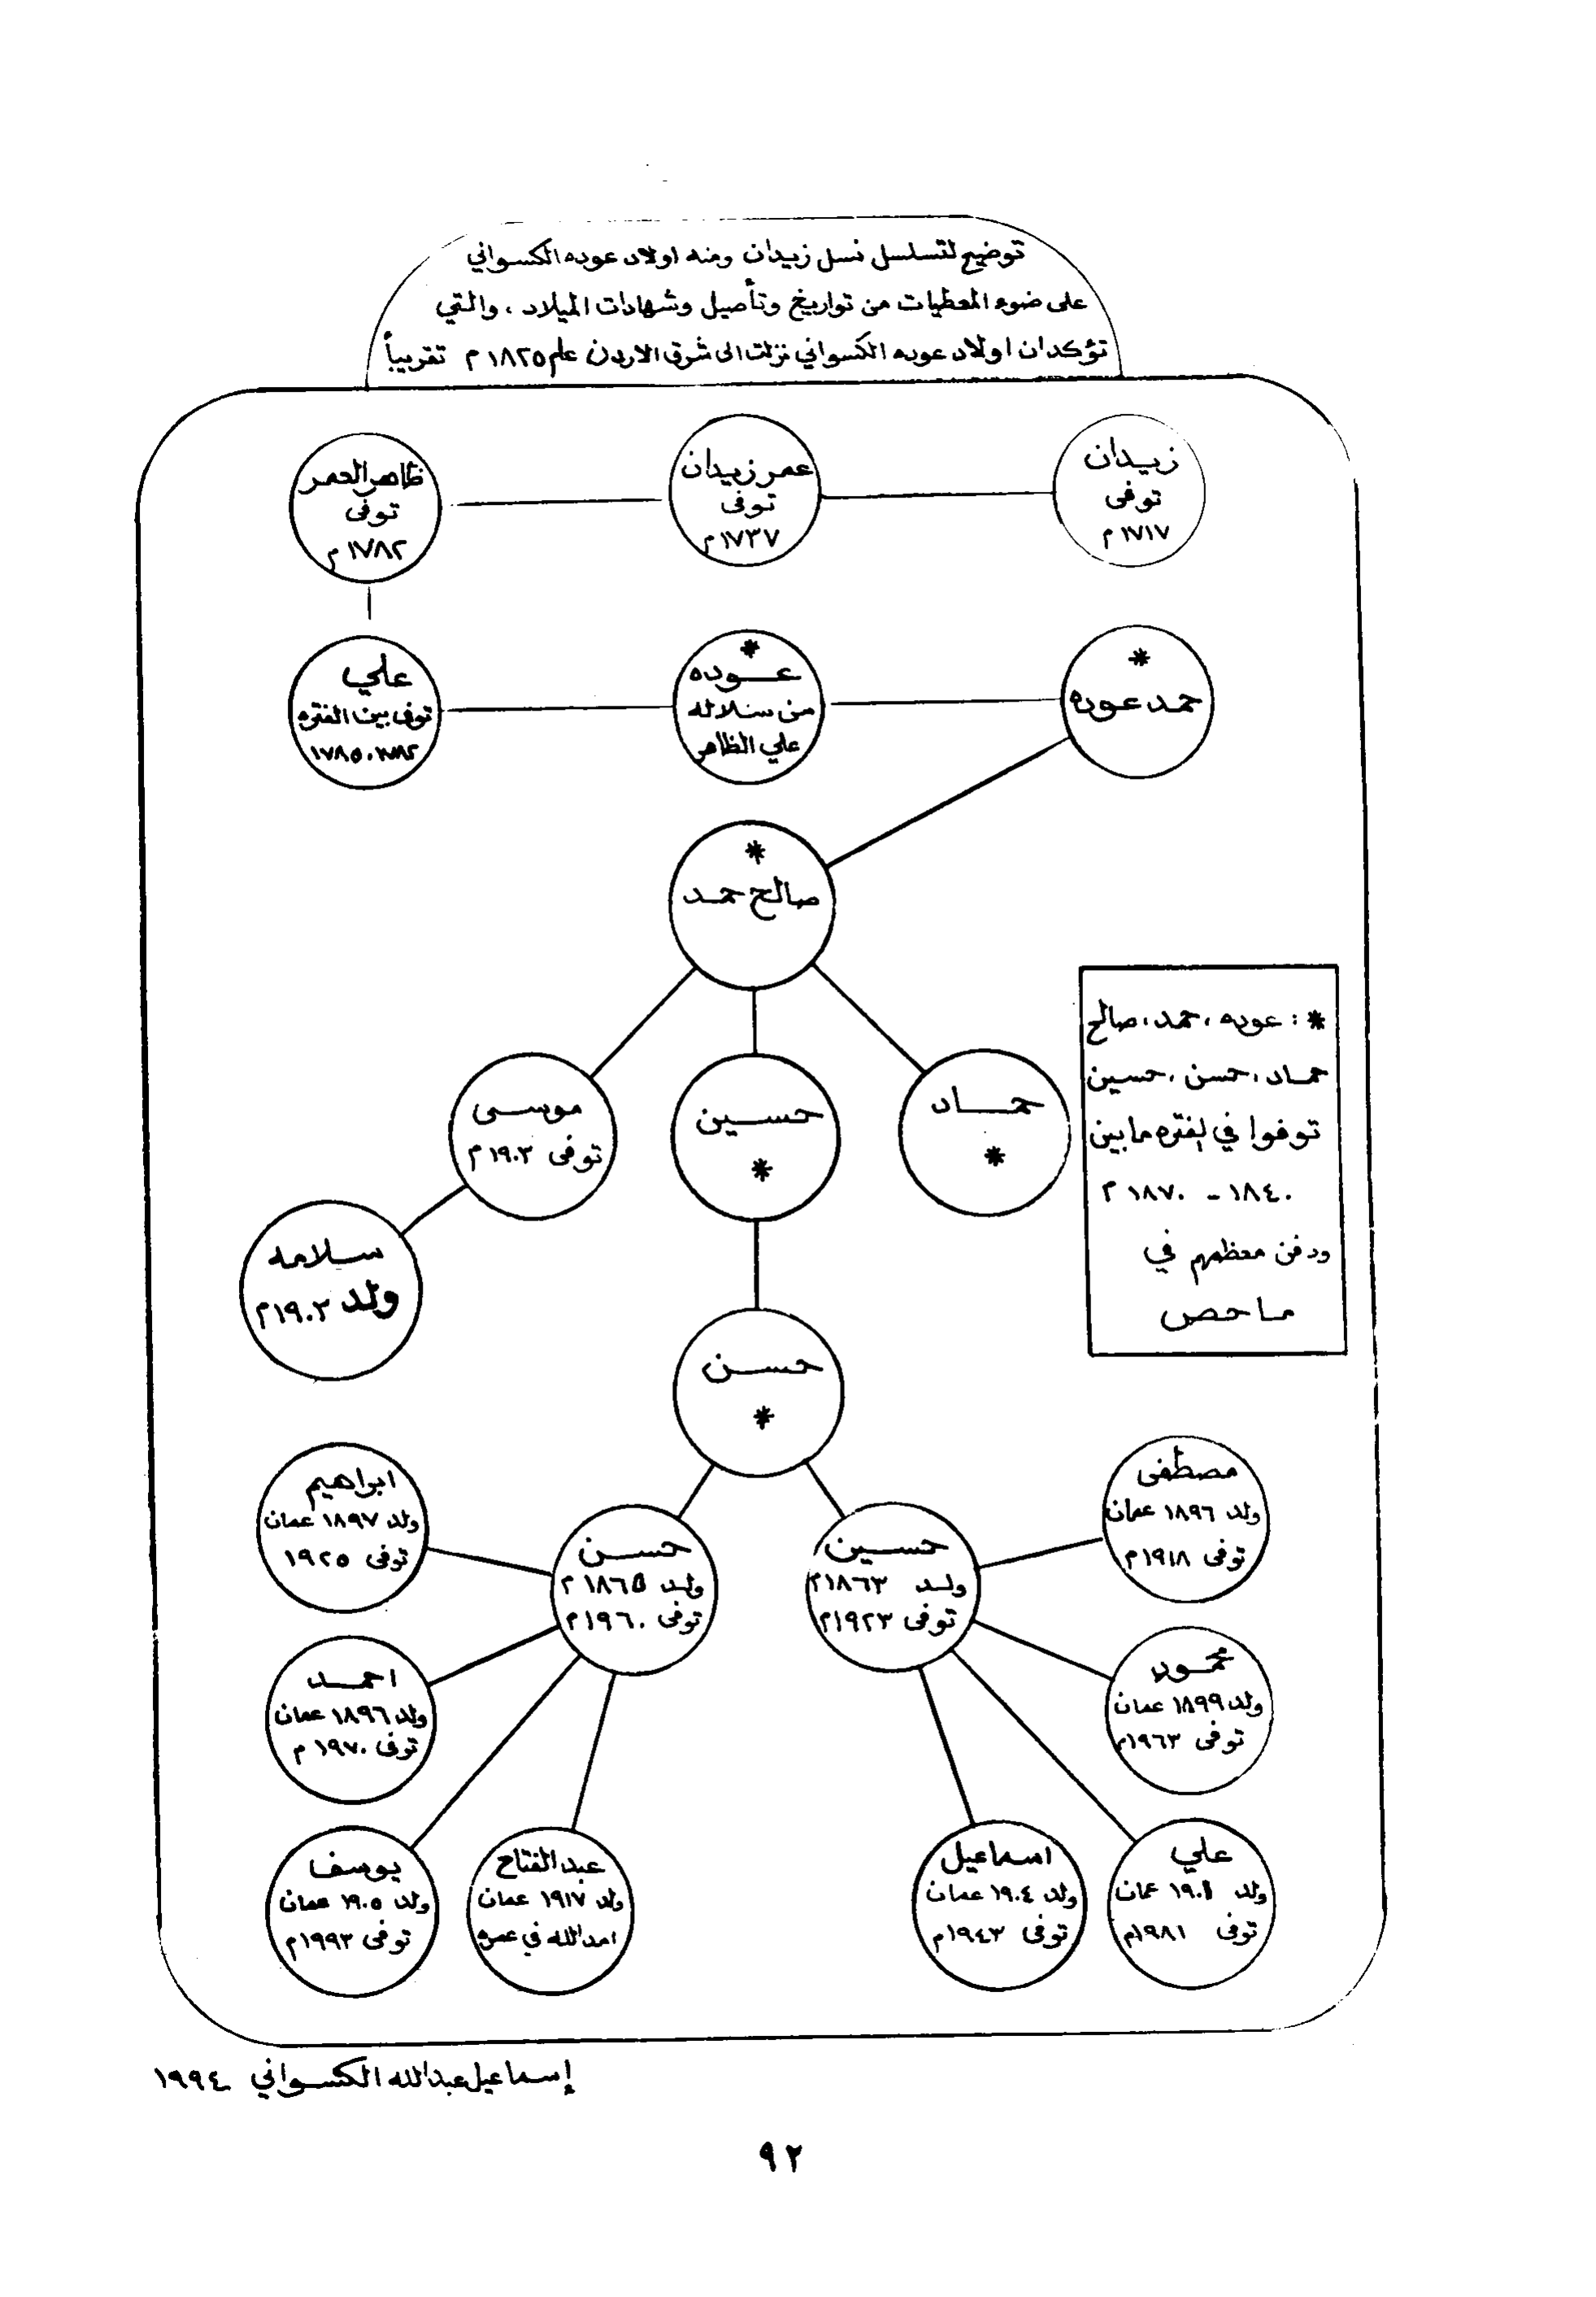 توضيح لتسلسل نسل زيدان ومنه اولاد عوده الكسواني
على ضوء المعطيات من تواريخ وتأصيل وشهادات الميلاد ، والتي
تؤكد ان اولاد عوده الكسواني نزلت الى شرق الاردن عام ١٨٢٥ م تقريباً
زيدان
توفى
١٧١٧ م
عمر زيدان
توفى
١٧٣٧ م
ظاهر العمر
توفى
١٧٨٢ م
علي
توفى بين الفتره
١٧٨٢ ، ١٧٨٥
*
عوده
من سلاله
علي الظاهر
*
حمد عوده
*
صالح حمد
حماد
*
حسين
*
موسى
توفى ١٩٠٣ م
سلامه
ولد ١٩٠٢ م
* : عوده ، حمد ، صالح
حماد ، حسن ، حسين
توفوا في الفتره ما بين
١٨٤٠ - ١٨٧٠ م
ودفن معظمهم في
ماحص
حسن
*
حسين
ولد ١٨٦٣ م
توفى ١٩٢٣ م
حسن
ولد ١٨٦٥ م
توفى ١٩٦٠ م
مصطفى
ولد ١٨٩٦ عمان
توفى ١٩١٨ م
محمود
ولد ١٨٩٩ عمان
توفى ١٩٦٣ م
علي
ولد عمان
توفى ١٩٨١ م
اسماعيل
ولد ١٩٠٤ عمان
توفى ١٩٤٣ م
ابراهيم
ولد ١٨٩٧ عمان
توفى ١٩٢٥
احمد
ولد ١٨٩٦ عمان
توفى ١٩٧٠ م
يوسف
ولد ١٩٠٥ عمان
توفى ١٩٩٣ م
عبد الفتاح
ولد ١٩١٧ عمان
امد الله في عمره
إسماعيل عبدالله الكسواني ١٩٩٤
٩٢